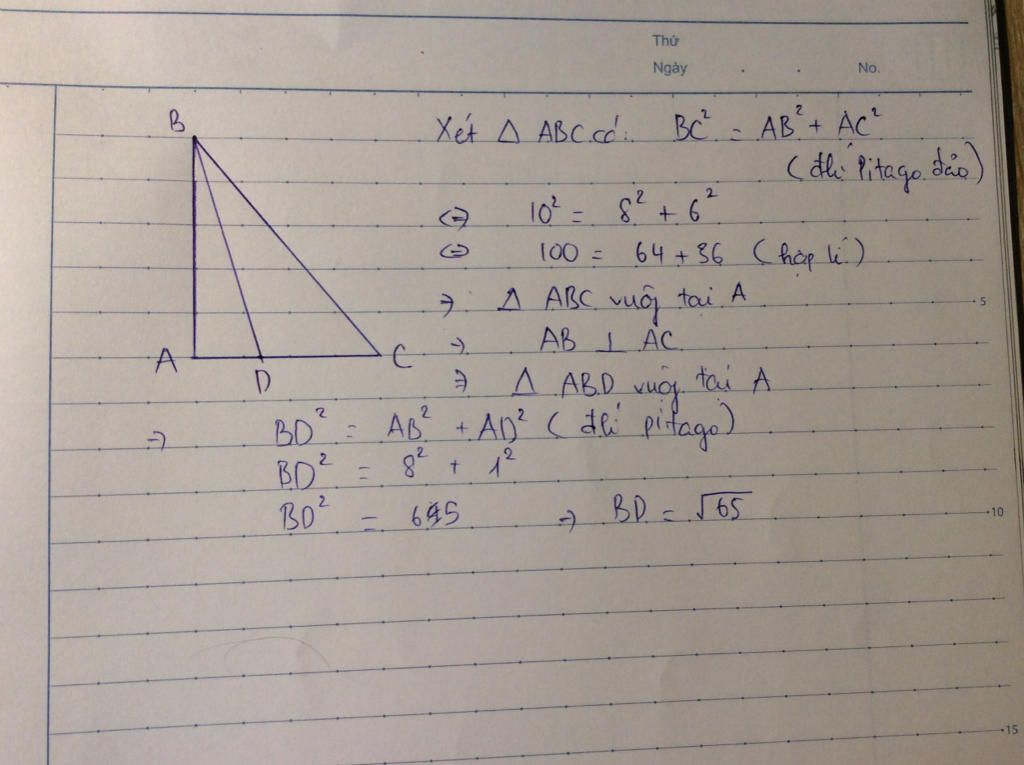 Thứ
Ngày . . No.
B
Xét △ ABC có: BC² = AB² + AC²
(đlí Pitago đảo)
⇔ 10² = 8² + 6²
⇔ 100 = 64 + 36 (hợp lí)
⇒ △ ABC vuôg tại A
5
⇒ AB ⊥ AC
A D C
⇒ △ ABD vuôg tại A
⇒ BD² = AB² + AD² (đlí pitago)
BD² = 8² + 1²
BD² = 65 ⇒ BD = √65
10
15